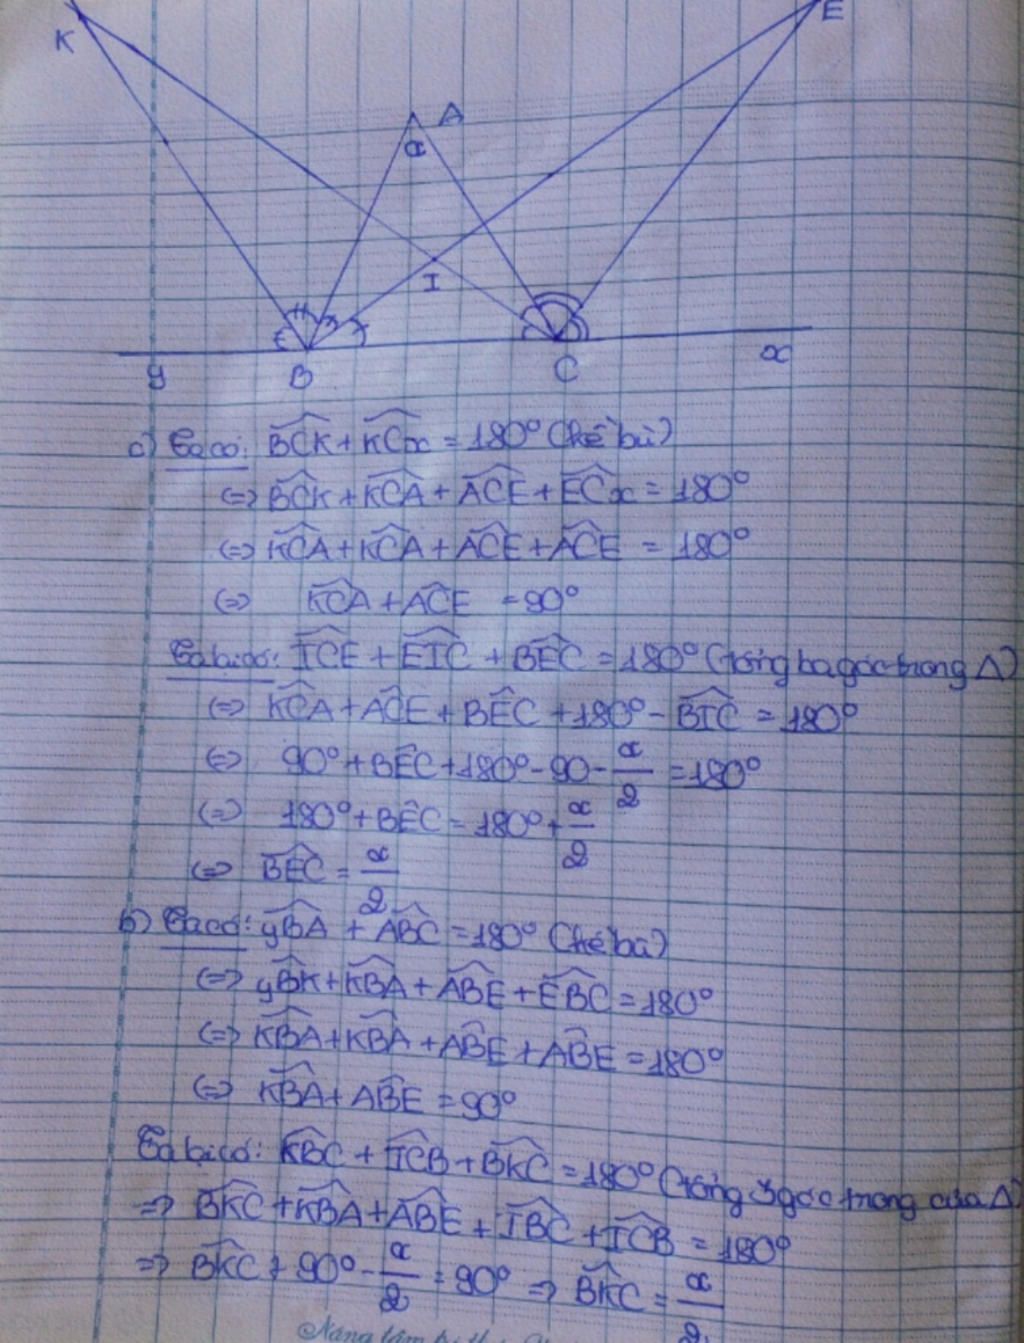 K
E
A
α
I
y
B
C
x
c) Ta có: BCK + KCx = 180° (kề bù)
<=> BCK + KCA + ACE + ECx = 180°
<=> KCA + KCA + ACE + ACE = 180°
<=> KCA + ACE = 90°
Ta lại có: ICE + EIC + BEC = 180° (tổng ba góc trong Δ)
<=> KCA + ACE + BEC + 180° - BIC = 180°
<=> 90° + BEC + 180° - 90 - α/2 = 180°
<=> 180° + BEC = 180° + α/2
<=> BEC = α/2
b) Ta có: yBA + ABC = 180° (kề bù)
<=> yBK + KBA + ABE + EBC = 180°
<=> KBA + KBA + ABE + ABE = 180°
<=> KBA + ABE = 90°
Ta lại có: KBC + ICB + BKC = 180° (tổng 3 góc trong của Δ)
=> BKC + KBA + ABE + IBC + ICB = 180°
=> BKC + 90° - α/2 = 90° => BKC = α/2